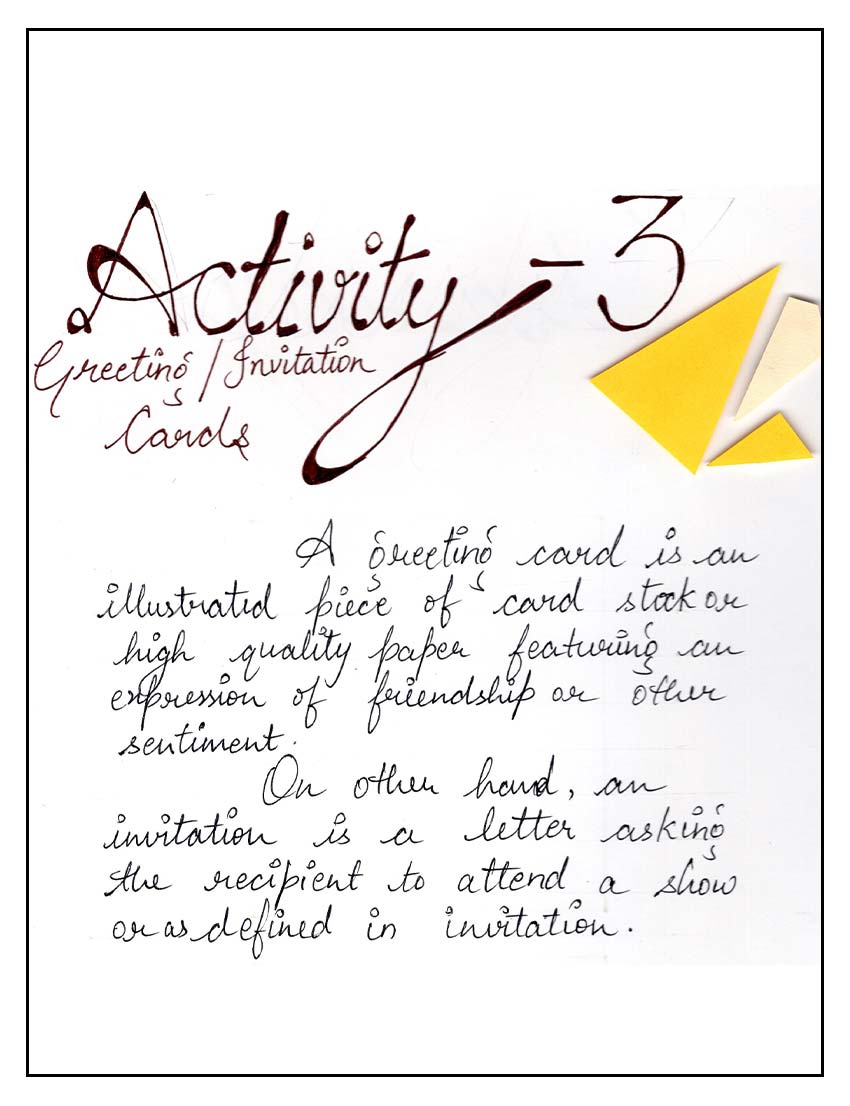 Activity - 3
Greeting / Invitation
Cards
A greeting card is an
illustrated piece of card stock or
high quality paper featuring an
expression of friendship or other
sentiment.
On other hand, an
invitation is a letter asking
the recipient to attend a show
or as defined in invitation.